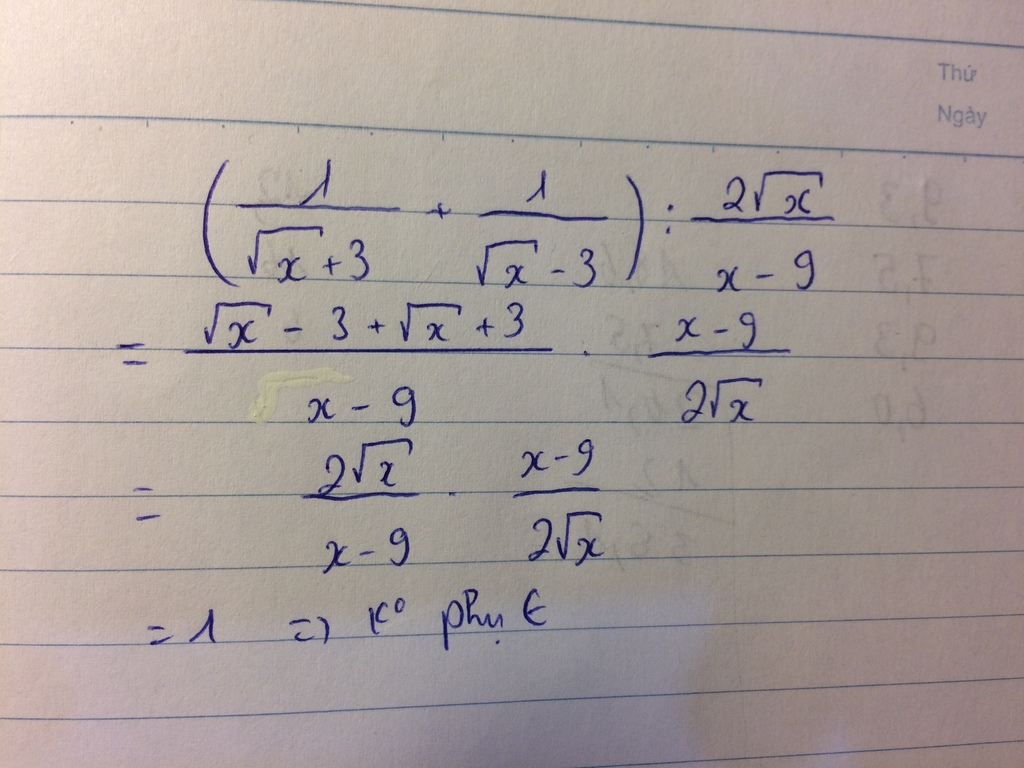 Thứ
Ngày
(1/(√x+3) + 1/(√x-3)) : 2√x/(x-9)
= (√x - 3 + √x + 3)/(x-9) . (x-9)/(2√x)
= 2√x/(x-9) . (x-9)/(2√x)
= 1 => K° phụ ∈